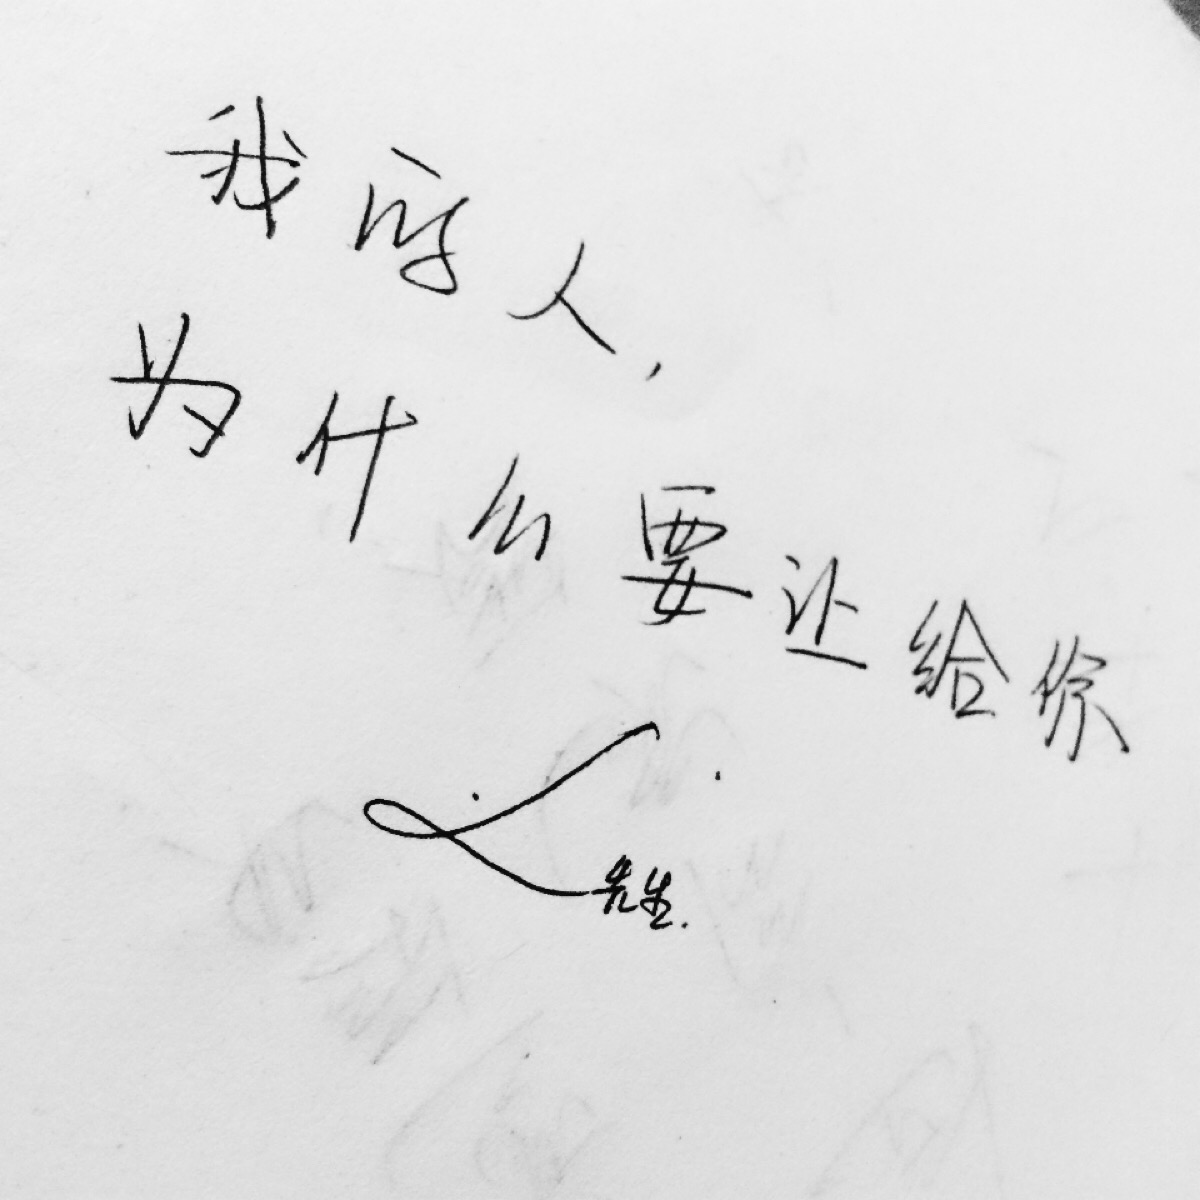 我的人,
为什么要让给你
L先生.